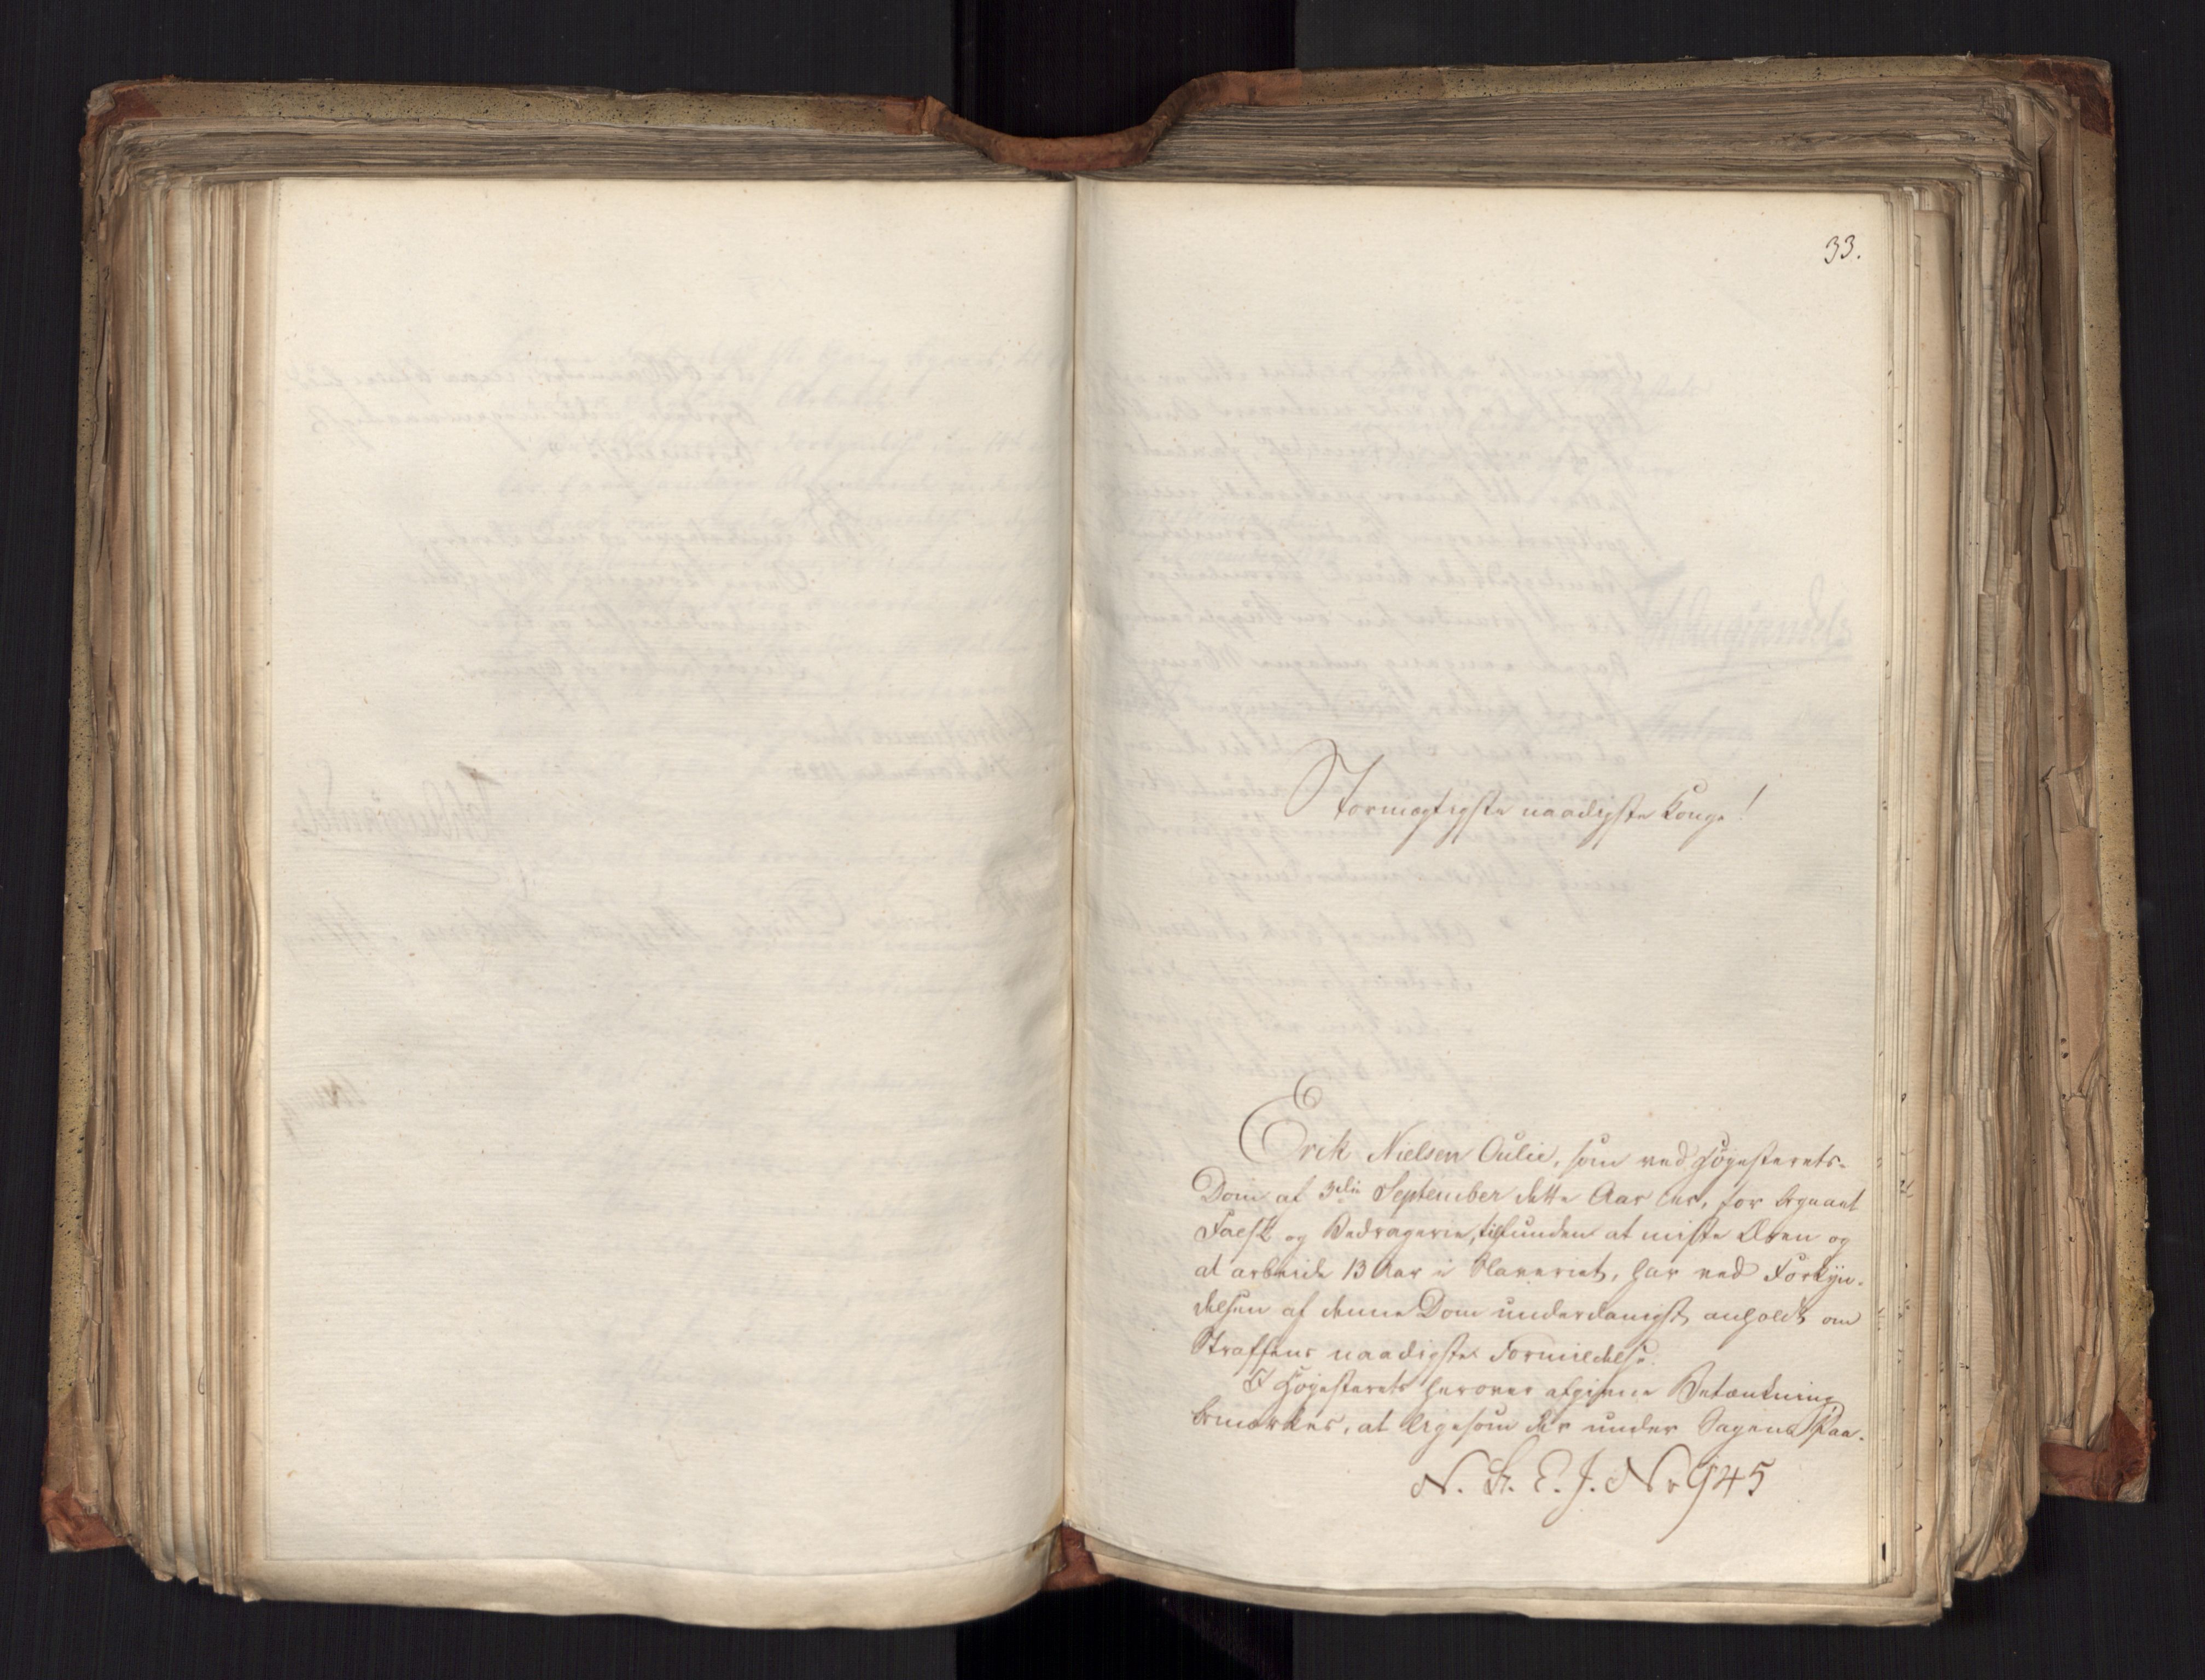 33.
Stormægtigste naadigste Konge!
Erik Nielsen Aulie, som ved Høiesterets-
Dom af 3die September dette Aar er, for begaaet
Falsk og Bedragerie, tilfunden at miste Æren og
at arbeide 13 Aar i Slaveriet, har ved Forkyn-
delsen af denne Dom underdanigst anholdt om
Straffens naadigste Formildelse.
I Høiesterets herover afgivne Betænkning
bemærkes, at ligesom der under Sagens Paa-
N. R. E. J. No 945